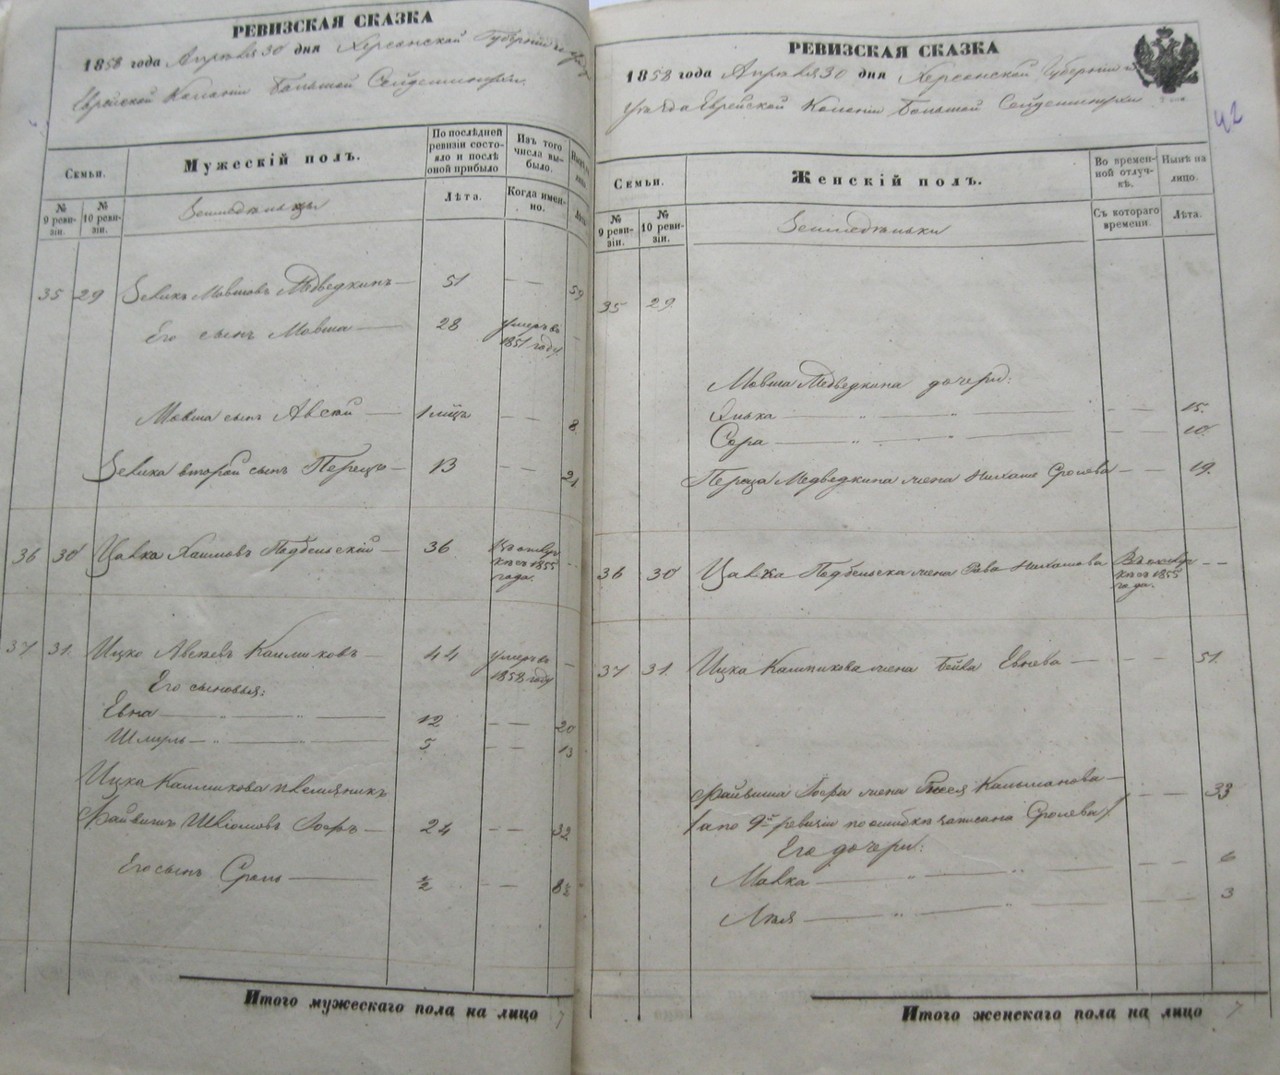 РЕВИЗСКАЯ СКАЗКА
1858 года Апреля 30 дня Херсонской Губернии
Еврейской Колонии Большой Сейдеминухи
Семьи.
Мужескій полъ.
По послѣдней ревизіи состояло и послѣ оной прибыло
Изъ того числа выбыло.
№ 9 ревизіи.
№ 10 ревизіи.
Лѣта.
Когда именно.
Лѣта
Земледельцы
35 29 Зеликъ Мовшовъ Медведкинъ — 51 — — 59
Его сынъ Мовша — 28 умеръ въ 1851 году —
Мовша сынъ — 1 — — 8
Зелика второй сынъ Перецъ — 13 — — 21
36 30 Хаимовъ Подбельскій — 36 1855 года. —
37 31 Ицко Калмыковъ — 44 умеръ въ 1858 году —
Его сыновья:
Евна — 12 — — 20
Шмуль — 5 — — 13
Ицка Калмыкова племянникъ
Файвишъ — 24 — — 32
Его сынъ Сроль — ½ — — 8½
Итого мужескаго пола на лицо 7
РЕВИЗСКАЯ СКАЗКА
1858 года Апреля 30 дня Херсонской Губернии
уезда Еврейской Колонии Большой Сейдеминухи
42
Семьи.
Женскій полъ.
Во временной отлучкѣ.
Нынѣ на лицо.
№ 9 ревизіи.
№ 10 ревизіи.
Съ котораго времени.
Лѣта.
Земледельки
35 29
Мовша Медведкина дочери:
— „ — „ — — — 15.
Сора — „ — „ — — — 10.
Переца Медведкина жена Сролева — — 19.
36 30 Подбельска жена 1855 года. — —
37 31. Ицка Калмыкова жена Бейва Евнева — — — 51.
Файвиша жена Кальманова — — — 33
/а по 9й ревизии по ошибке записана Сролева/
Его дочери:
Малка — „ — „ — — — 6
Лея — „ — „ — — — 3
Итого женскаго пола на лицо 7